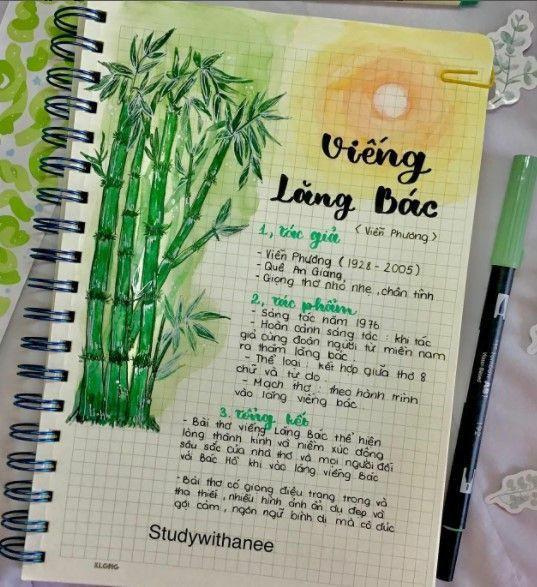 Viếng
Lăng Bác
< Viễn Phương >
1, tác giả
- Viễn Phương ( 1928 - 2005 )
- Quê An Giang,
- Giọng thơ nhỏ nhẹ , chân tình
2, tác phẩm
- Sáng tác năm 1976
- Hoàn cảnh sáng tác : khi tác
giả cùng đoàn người từ miền nam
ra thăm lăng bác .
- Thể loại : kết hợp giữa thơ 8
chữ và tự do
- Mạch thơ : theo hành trình
vào lăng viếng bác
3. tổng kết
- Bài thơ viếng Lăng Bác thể hiện
lòng thành kính và niềm xúc động
sâu sắc của nhà thơ và mọi người đối
với Bác Hồ khi vào lăng viếng Bác
- Bài thơ có giọng điệu trang trọng và
tha thiết , nhiều hình ảnh ẩn dụ đẹp và
gợi cảm , ngôn ngữ bình dị mà cô đúc
Studywithanee
KLONG